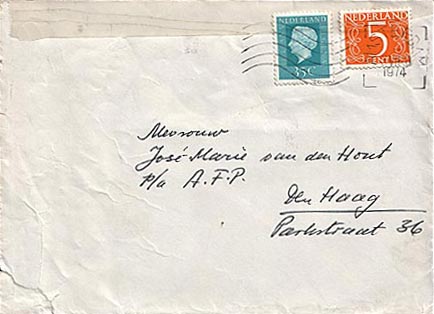 NEDERLAND
35c
NEDERLAND
5
CENT
1974
Mevrouw
José Marie van den Hout
p/a A.F.P.
Den Haag
Parkstraat 36